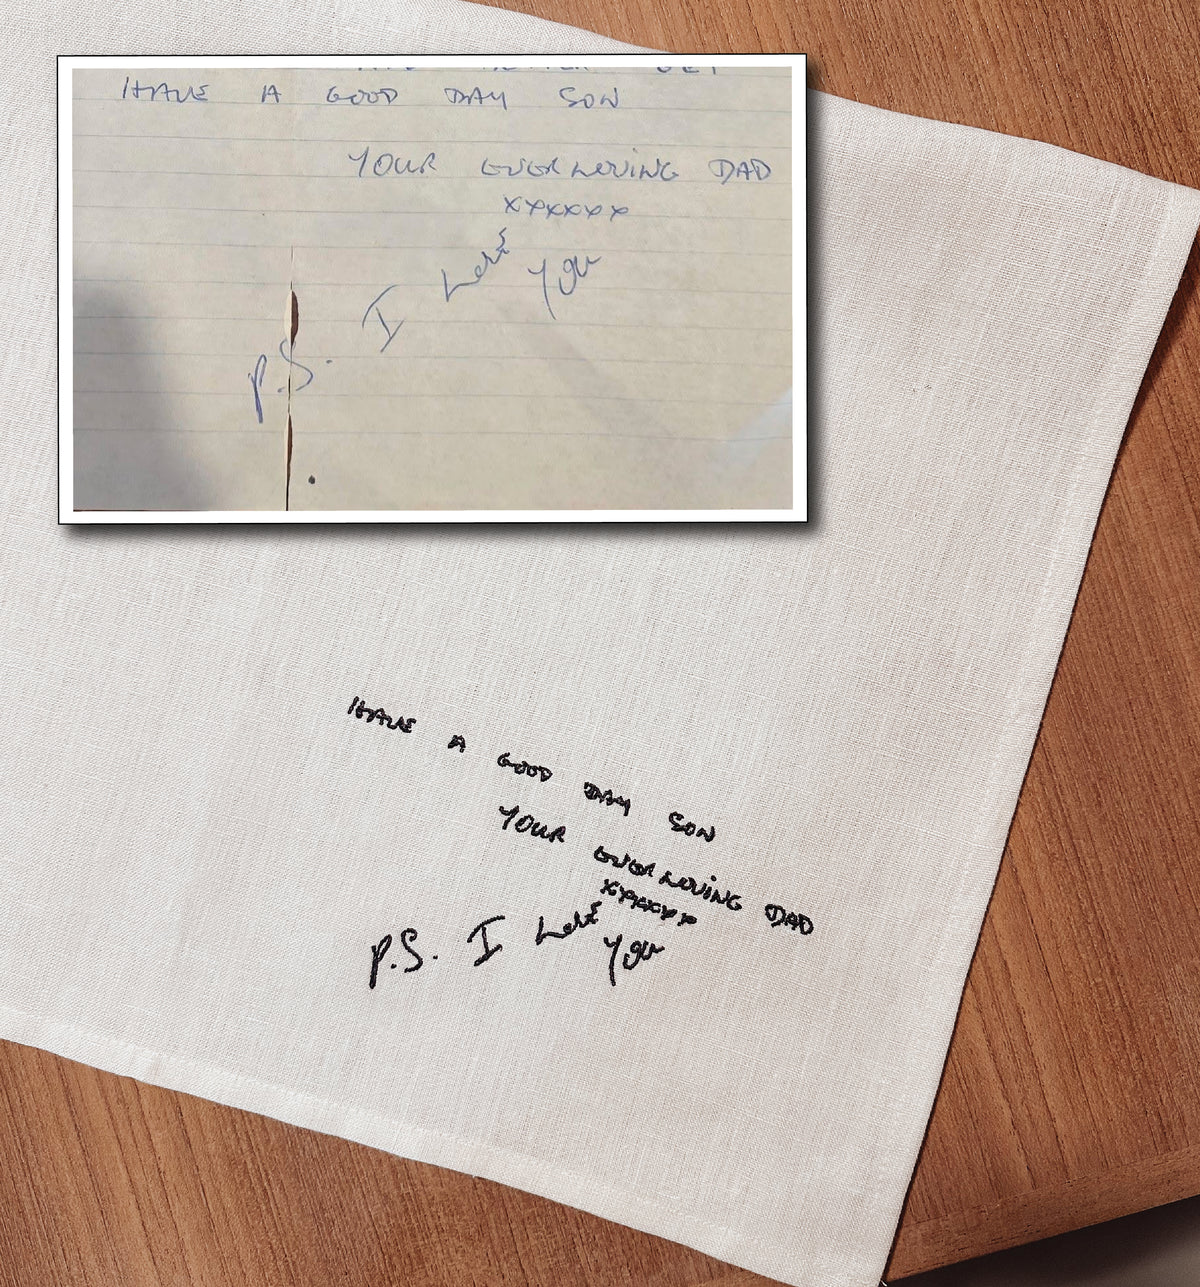 HAVE A GOOD DAY SON
YOUR EVERLOVING DAD
xxxxxx
P.S. I love you
HAVE A GOOD DAY SON
YOUR EVERLOVING DAD
xxxxxx
P.S. I love you